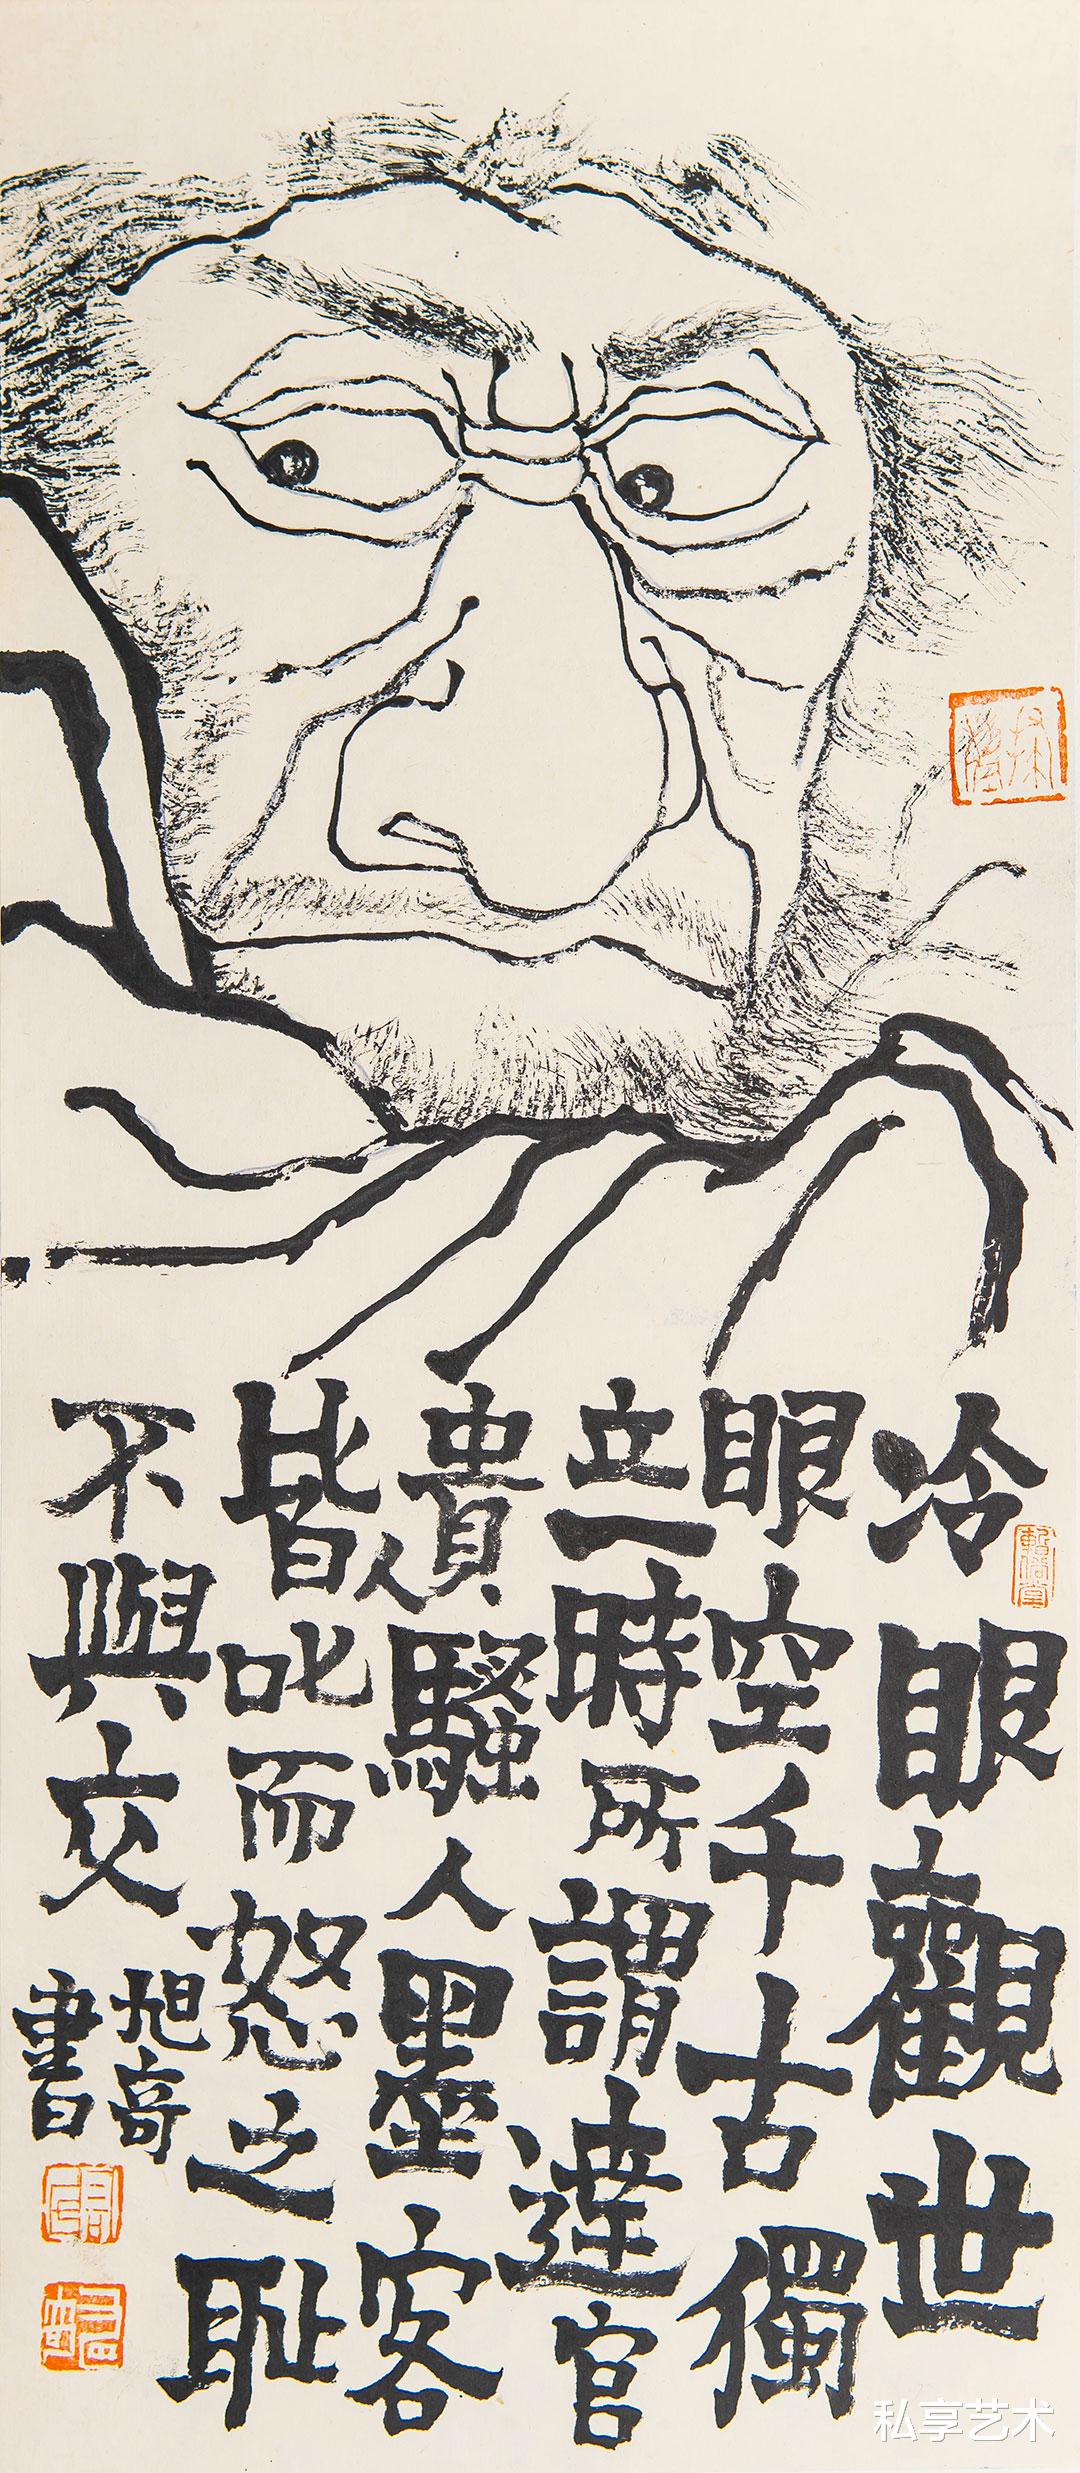 冷眼觀世
眼空千古獨
立一時所謂達官
貴人騷人墨客
皆叱而怒之恥
不與交
旭奇
書
私享艺术